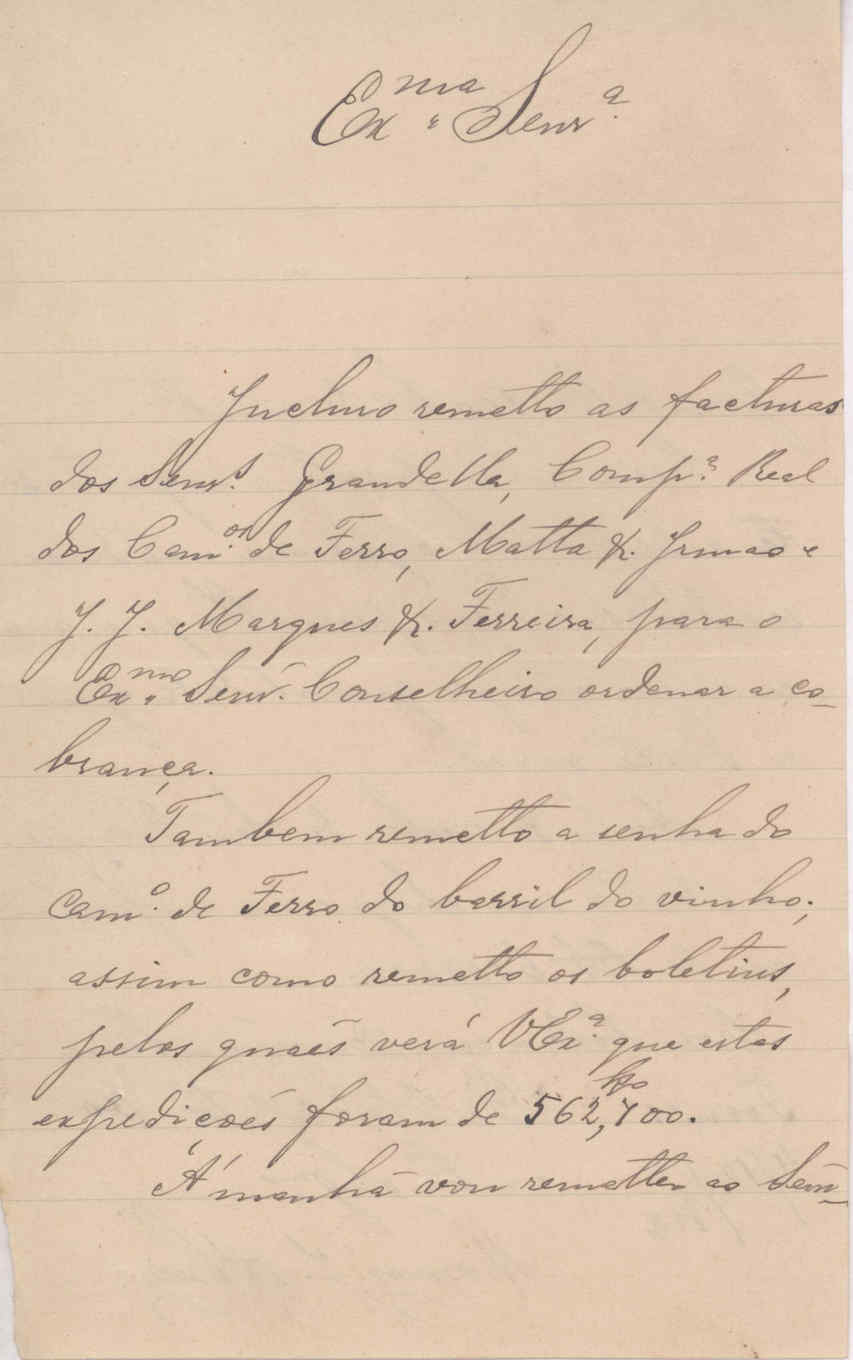 Ex.ma Senr.ª
Incluso remetto as facturas
dos Senr.s Grandella, Comp.ª Real
dos Cam.os de Ferro, Matta & Irmao e
J. J. Marques & Ferreira, para o
Ex.mo Senr. Conselheiro ordenar a co-
brança.
Tambem remetto a senha do
Cam.º de Ferro do barril do vinho;
assim como remetto os boletins,
pelos quaés verá VEx.ª que estas
expedições foram de 562,ko700.
Á'manhã vou remetter ao Sem-